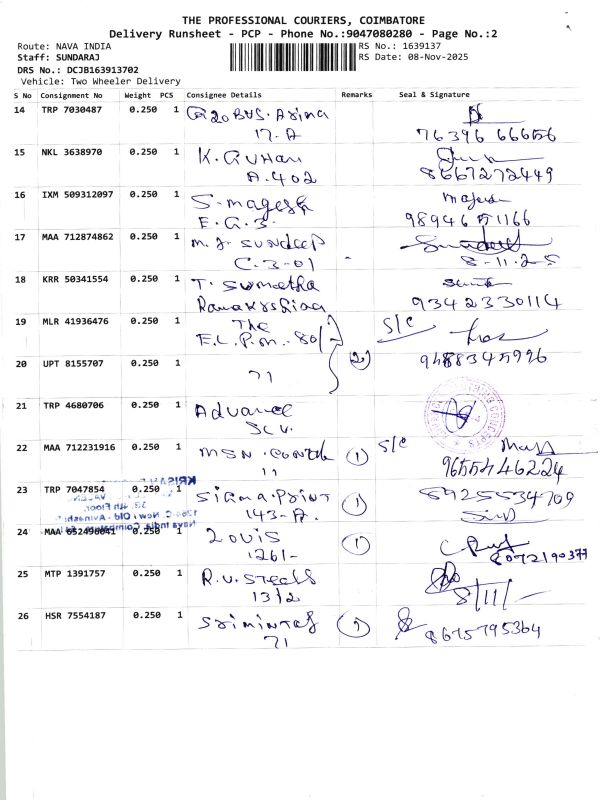 THE PROFESSIONAL COURIERS, COIMBATORE
Delivery Runsheet - PCP - Phone No.:9047080280 - Page No.:2
Route: NAVA INDIA
RS No.: 1639137
Staff: SUNDARAJ
RS Date: 08-Nov-2025
DRS No.: DCJB163913702
Vehicle: Two Wheeler Delivery
S No Consignment No Weight PCS Consignee Details Remarks Seal & Signature
14 TRP 7030487 0.250 1
17-A 76396 66656
15 NKL 3638970 0.250 1 K. GUHAN
A.402 8667272449
16 IXM 509312097 0.250 1 S. magesh
E.G.3. 98946 51166
17 MAA 712874862 0.250 1 M. J. SUNDEEP
C.3-01 8-11-25
18 KRR 50341554 0.250 1 T. Sumetha
93423 30114
19 MLR 41936476 0.250 1 The S/C
E.L.P.M. 80/
20 UPT 8155707 0.250 1 71 2 9488345996
21 TRP 4680706 0.250 1 Advance
22 MAA 712231916 0.250 1 MSN 1 S/C
11 9655446224
23 TRP 7047854 0.250 1 Sigma Print 1 8925534709
143-A.
24 MAA 652498041 0.250 1 Louis 1
1261- 8072190377
25 MTP 1391757 0.250 1 R.V. Steels
13/2 8/11/-
26 HSR 7554187 0.250 1 1
71 8675795364